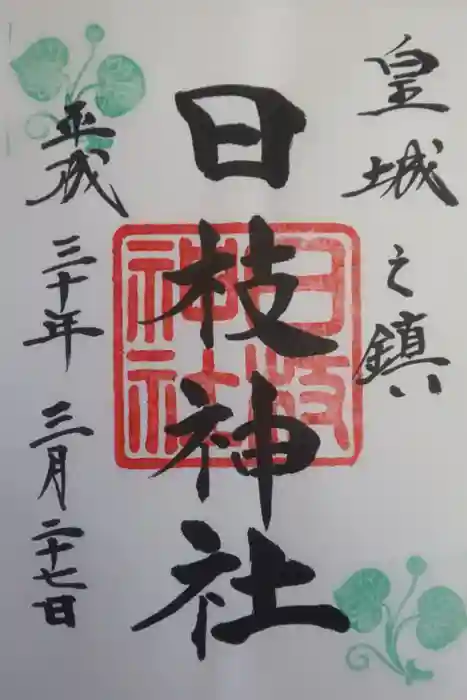 皇城之鎮
日枝神社
平成三十年三月二十七日
日枝神社